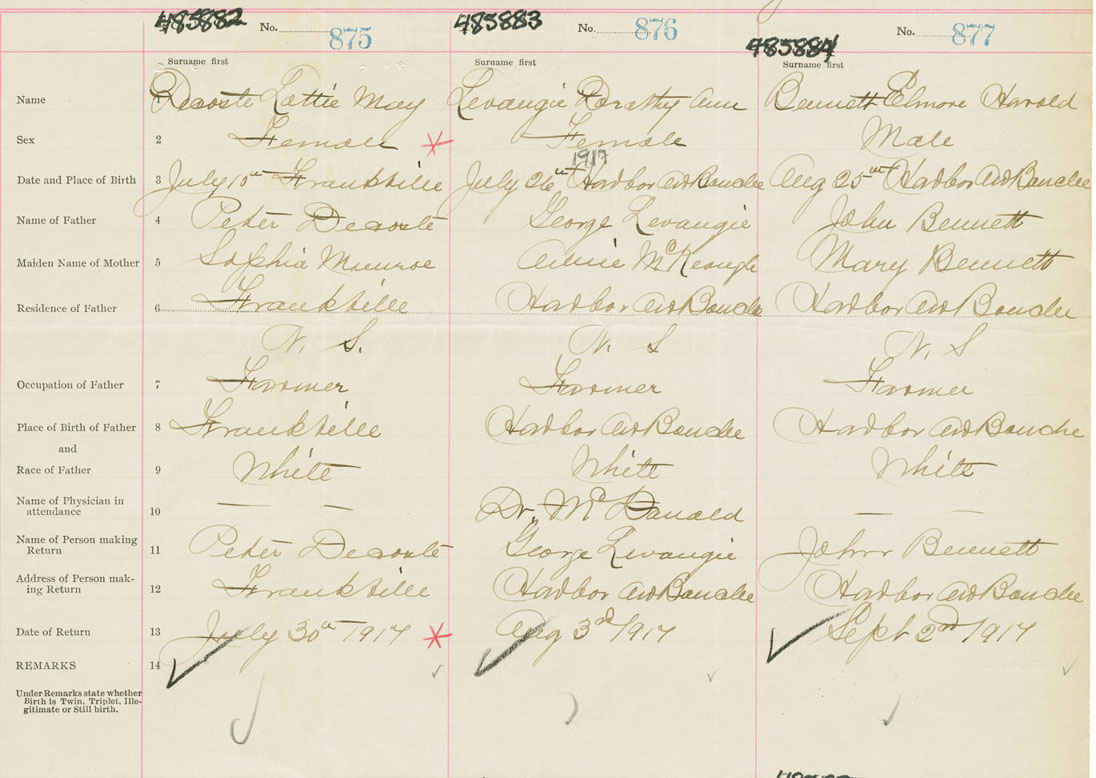 485882 No. 875 485883 No. 876 485884 No. 877
Surname first Surname first Surname first
Name 1 Decoste Lottie May Levangie Dorothy Ann Bennett Elmore Harold
Sex 2 Female Female Male
1917
Date and Place of Birth 3 July 10th Frankville July 26th Harbor Au Bouche Aug 25th Harbor Au Bouche
Name of Father 4 Peter Decoste George Levangie John Bennett
Maiden Name of Mother 5 Sophia Munroe Annie McKeough Mary Bennett
Residence of Father 6 Frankville Harbor Au Bouche Harbor Au Bouche
N. S. N. S N. S
Occupation of Father 7 Farmer Farmer Farmer
Place of Birth of Father 8 Frankville Harbor Au Bouche Harbor Au Bouche
and
Race of Father 9 White White White
Name of Physician in
attendance 10 — — Dr. McDonald — —
Name of Person making
Return 11 Peter Decoste George Levangie John Bennett
Address of Person mak-
ing Return 12 Frankville Harbor Au Bouche Harbor Au Bouche
Date of Return 13 July 30th 1917 Aug 3rd 1917 Sept 2nd 1917
REMARKS 14
Under Remarks state whether
Birth is Twin, Triplet, Ille-
gitimate or Still birth.